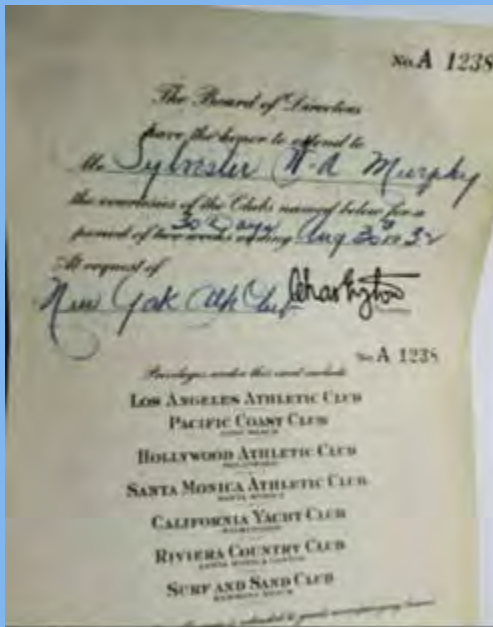 No. A 1238
The Board of Directors
have the honor to extend to
Mr Sylvester W-A Murphy
the courtesies of the Clubs named below for a
30 Days
period of two weeks ending Aug 30th 1932
At request of
New York Ath Club
No. A 1238
Privileges under this card include
LOS ANGELES ATHLETIC CLUB
PACIFIC COAST CLUB
LONG BEACH
HOLLYWOOD ATHLETIC CLUB
HOLLYWOOD
SANTA MONICA ATHLETIC CLUB
SANTA MONICA
CALIFORNIA YACHT CLUB
WILMINGTON
RIVIERA COUNTRY CLUB
SANTA MONICA CANYON
SURF AND SAND CLUB
HERMOSA BEACH